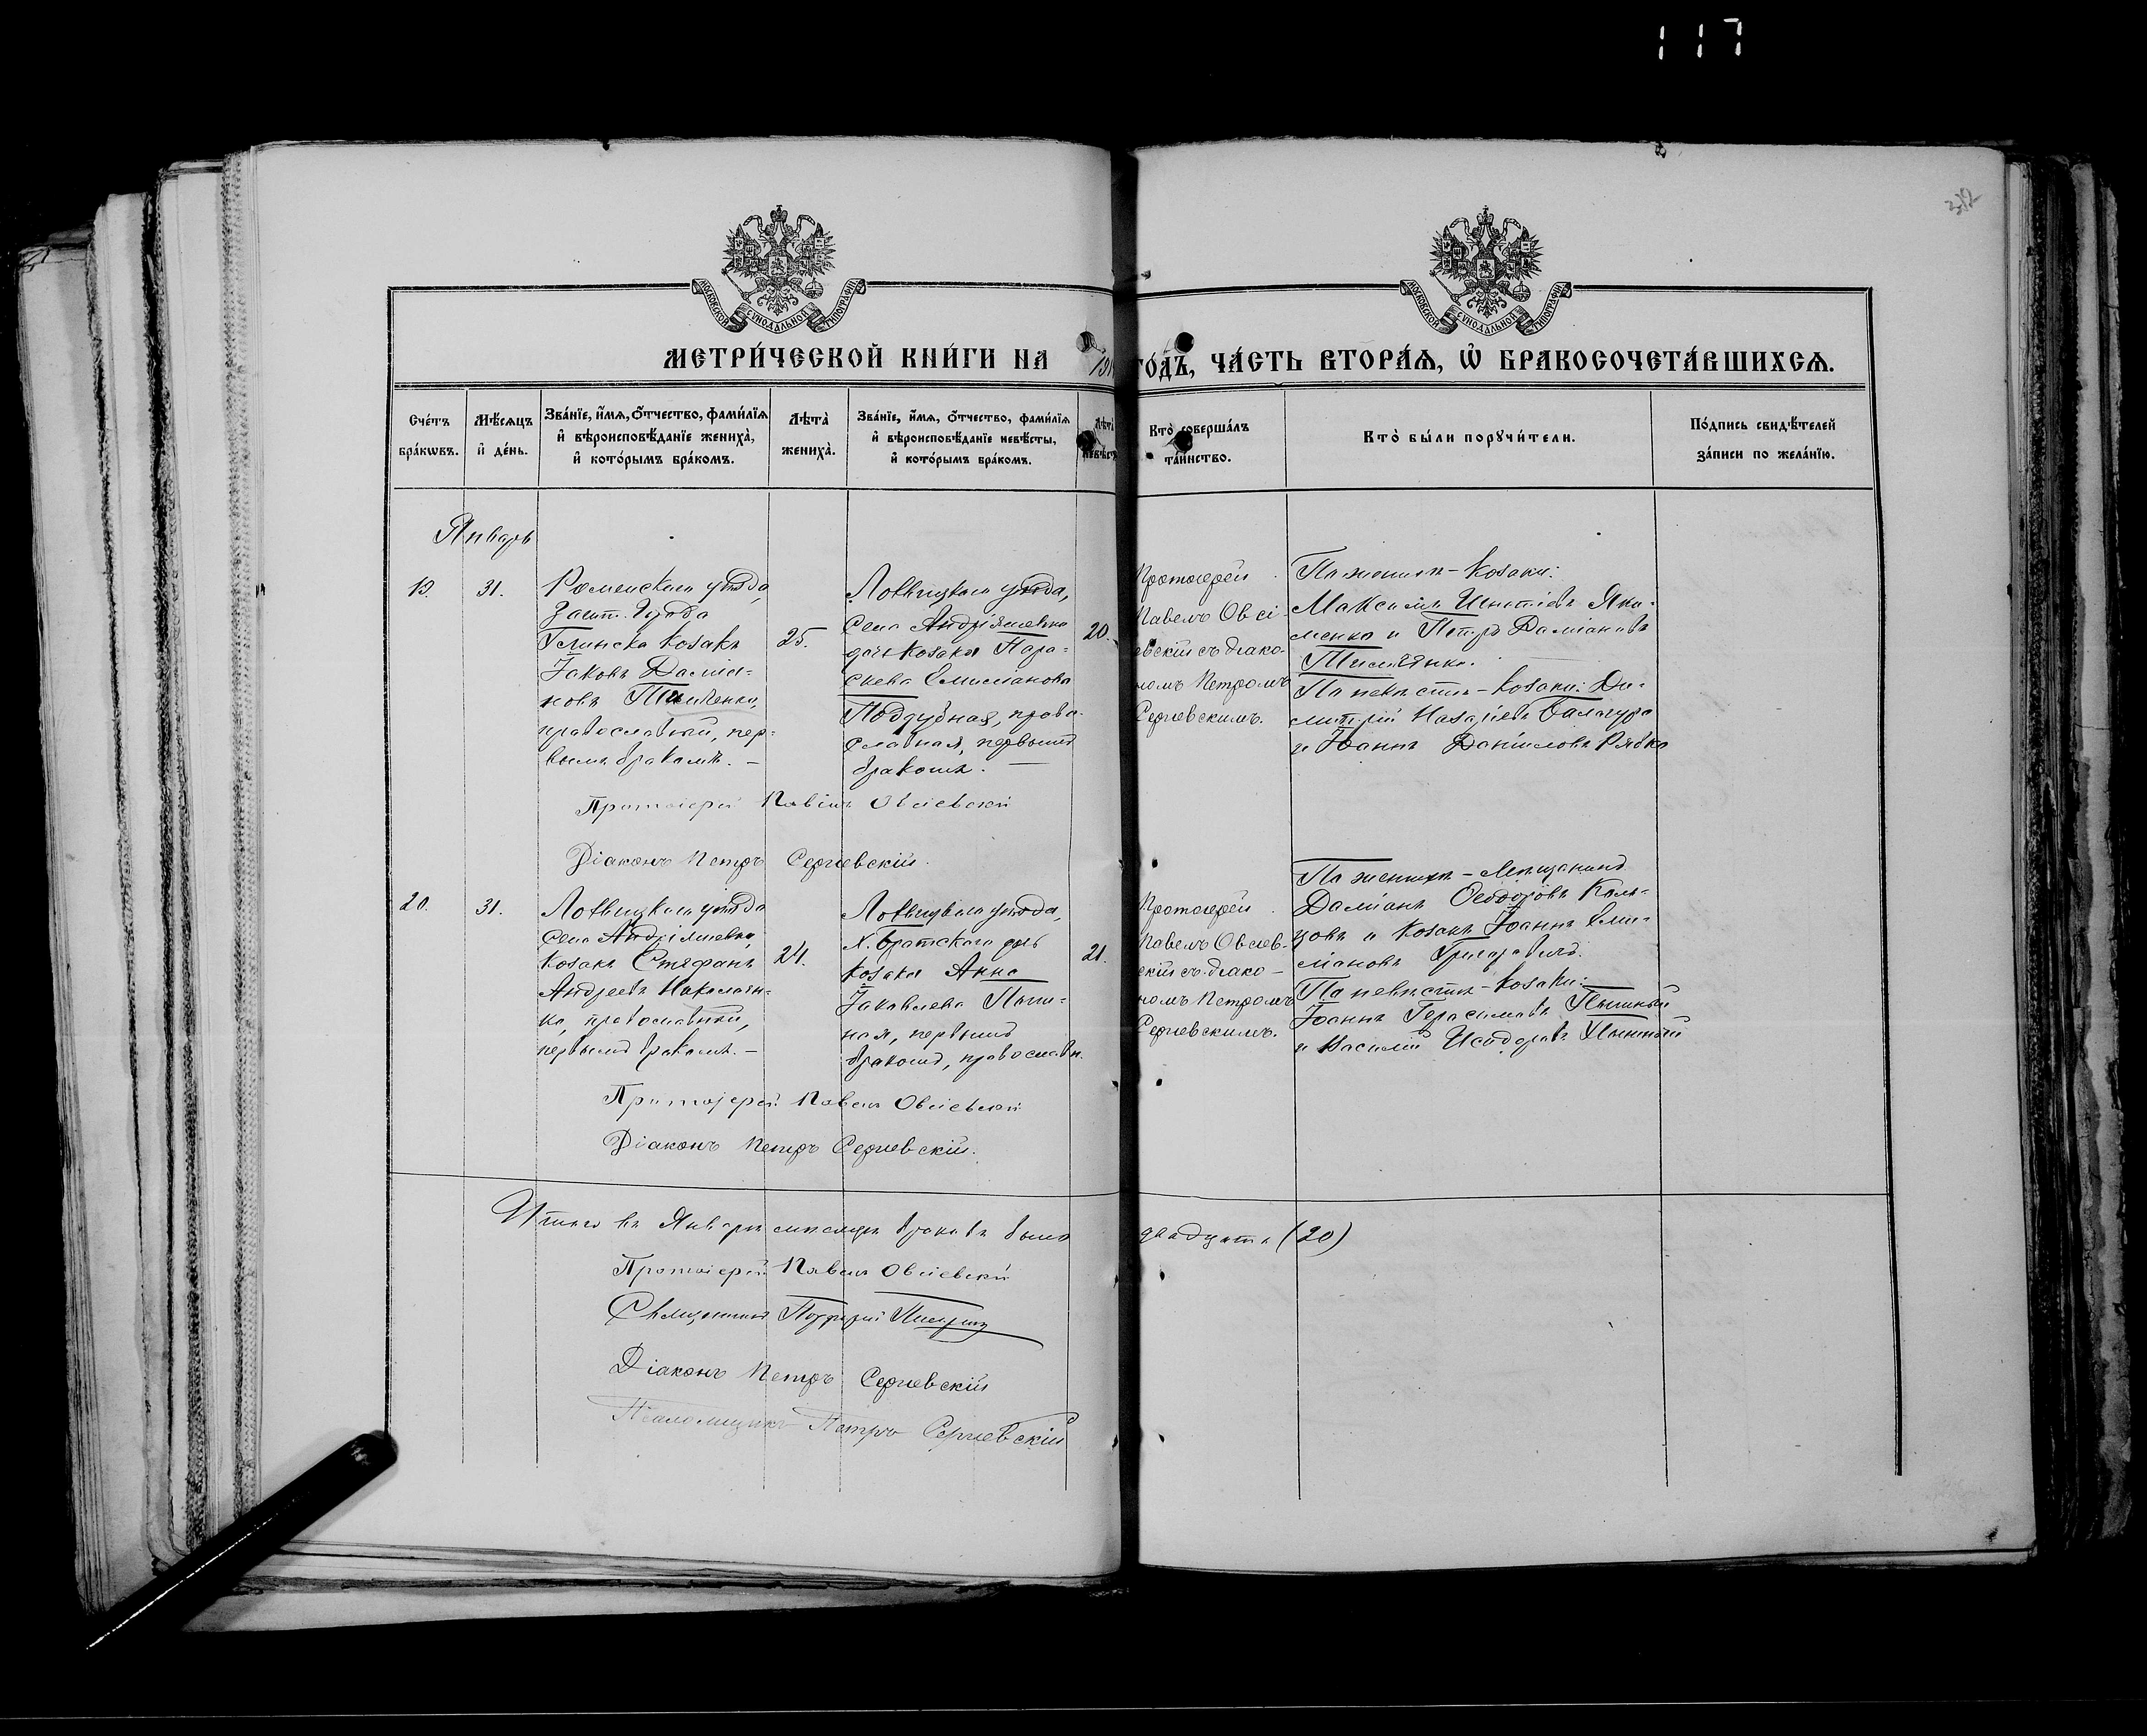 117
312
МОСКОВСКОЙ СѴНОДАЛЬНОЙ ТИПОГРАФІИ
МОСКОВСКОЙ СѴНОДАЛЬНОЙ ТИПОГРАФІИ
МЕТРИ́ЧЕСКОЙ КНИ́ГИ НА 191 ГО́ДЪ, ЧА́СТЬ ВТОРА́Ѧ, Ѽ БРАКОСОЧЕТА́ВШИХСѦ.
Сче́тъ бра́кѡвъ.
Мѣ́сѧцъ и҆ де́нь.
Зва́нїе, и҆́мѧ, ѻ҆́тчество, фами́лїѧ
и҆ вѣроисповѣ́данїе жениха̀,
и҆ кото́рымъ бра́комъ.
Лѣта̀ жениха̀.
Зва́нїе, и҆́мѧ, ѻ҆́тчество, фами́лїѧ
и҆ вѣроисповѣ́данїе невѣ́сты,
и҆ кото́рымъ бра́комъ.
Лѣта̀ невѣ́сты
Кто̀ соверша́лъ
та́инство.
Кто̀ бы́ли порꙋчи́тели.
По́дпись свидѣ́телей
за́писи по жела́нїю.
Январь
19.
31.
Роменскаго уѣзда,
Зашт. Города
Глинска козакъ
Іаковъ Даміа-
новъ
православный, пер-
вымъ бракомъ. –
25.
Лохвицкаго уѣзда,
Села Андріяшевки
дочь козака Пара-
скева Емиліанова
Поддубная, право-
славная, первымъ
бракомъ. –
20.
Протоіерей
Павелъ Овсі-
евскій съ діако-
номъ Петромъ
Сергіевскимъ.
По женихѣ – козаки:
Максимъ Игнатіевъ Яки-
менко и Петръ Даміановъ
По невѣстѣ – козаки: Ди-
митрій Назаріевъ Балагура
и Іоаннъ Даніиловъ Рябко
Протоіерей Павелъ Овсіевскій
Діаконъ Петръ Сергіевскій.
20.
31.
Лохвицкаго уѣзда
Села Андріяшевки,
козакъ Стефанъ
Андреевъ Николаен-
ко, православный,
первымъ бракомъ. –
24.
Лохвицкаго уѣзда,
х. Братскаго дочь
козака Анна
Іаковлева Пыш-
ная, первымъ
бракомъ, православн.
21.
Протоіерей
Павелъ Овсіев-
скій съ діако-
номъ Петромъ
Сергіевскимъ.
По женихѣ – Мѣщанинъ
Даміанъ Ѳеодоровъ Коль-
цовъ и козакъ Іоаннъ Еми-
ліановъ
По невѣстѣ – козаки:
Іоаннъ Герасимовъ Пышный
и Василій Исидоровъ Пышный
Протоіерей Павелъ Овсіевскій
Діаконъ Петръ Сергіевскій.
Итого въ Январѣ мѣсяцѣ браковъ было двадцать (20)
Протоіерей Павелъ Овсіевскій
Священникъ Порфирій
Діаконъ Петръ Сергіевскій
Псаломщикъ Петръ Сергіевскій